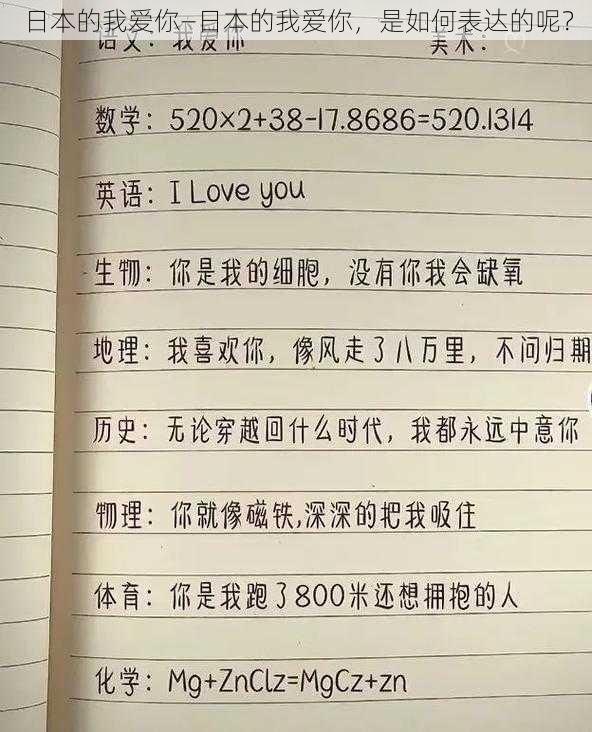 日本的我爱你—日本的我爱你，是如何表达的呢？
语文：我爱你 美术：
数学：520×2+38-17.8686=520.1314
英语：I Love you
生物：你是我的细胞，没有你我会缺氧
地理：我喜欢你，像风走了八万里，不问归期
历史：无论穿越回什么时代，我都永远中意你
物理：你就像磁铁,深深的把我吸住
体育：你是我跑了800米还想拥抱的人
化学：Mg+ZnClz=MgCz+zn